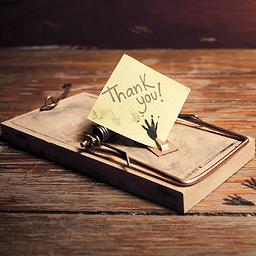 Thank
you!